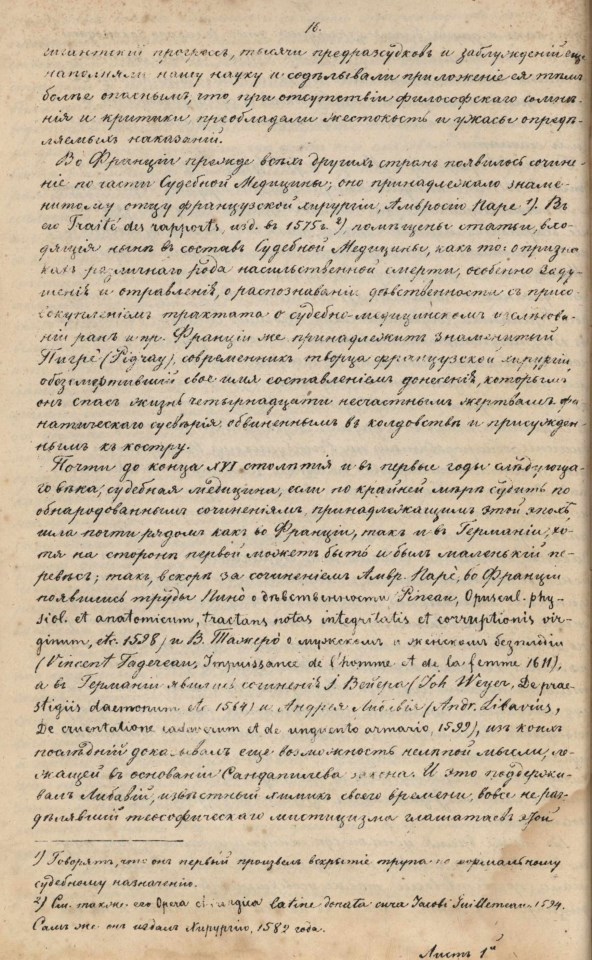 16.
гигантскій прогрессъ, тысячи предразсудковъ и заблужденій еще
наполняли нашу науку и содѣлывали приложеніе ея тѣмъ
болѣе опаснымъ, что, при отсутствіи философскаго сомнѣ-
нія и критики преобладали жестокость и ужасы опредѣ-
ляемыхъ наказаній.
Во Франціи прежде всѣхъ другихъ странъ появилось сочине-
ніе по части Судебной Медицины; оно принадлежало знаме-
нитому отцу французской хирургіи, Амвросію Паре 1). Въ
его Traité des rapports, изд. въ 1575 г. 2), помѣщены статьи, вхо-
дящія нынѣ въ составъ Судебной Медицины, какъ то: о призна-
кахъ различнаго рода насильственной смерти, особенно заду-
шенія и отравленія, о распознаваніи дѣвственности съ присо-
вокупленіемъ трактата о судебно-медицинскомъ изслѣдова-
ніи ранъ и пр. Франціи же принадлежитъ знаменитый
Пигре (Pigray), современникъ творца французской хирургіи,
обезсмертившій свое имя составленіемъ донесенія, которымъ
онъ спасъ жизнь четырнадцати несчастнымъ жертвамъ фа-
натическаго суевѣрія обвиненнымъ въ колдовствѣ и присужден-
нымъ къ костру.
Почти до конца XVI столѣтія и въ первые годы слѣдующа-
го вѣка, судебная медицина, если по крайней мѣрѣ судить по
обнародованнымъ сочиненіямъ, принадлежащимъ этой эпохѣ
шла почти рядомъ какъ во Франціи, такъ и въ Германіи, хо-
тя на сторонѣ первой можетъ быть и былъ маленькій пе-
ревѣсъ; такъ, вскорѣ за сочиненіемъ Амвр. Паре, во Франціи
появились труды Пино о дѣвственности (Pineau, Opuscul. phy-
siol. et anatomicum, tractans notas integritatis et corruptionis vir-
ginum, etc. 1598) и В. Тажеро о мужскомъ и женскомъ безплодіи
(Vincent Tagereau, Impuissance de l'homme et de la femme 1611),
а въ Германіи явились сочиненія І. Вейера (Joh Weyer, De prae-
stigiis daemonum etc 1564) и Андрея Либавія (Andr. Libavius,
De cruentatione cadaverum et de unguento armario, 1599), изъ коихъ
послѣдній доказывалъ еще возможность нелѣпой мысли, ле-
жащей въ основаніи Сандапилева закона. И это поддержи-
валъ Либавій, извѣстный химикъ своего времени, вовсе не раз-
дѣлявшій теософическаго мистицизма глашатаевъ этой
1) Говорятъ, что онъ первый произвелъ вскрытіе трупа по формальному
судебному назначенію.
2) См. также его Opera latine donata cura Jacobi Guillemeau 1594.
Самъ же онъ издалъ Хирургію, 1582 года.
Листъ 1й